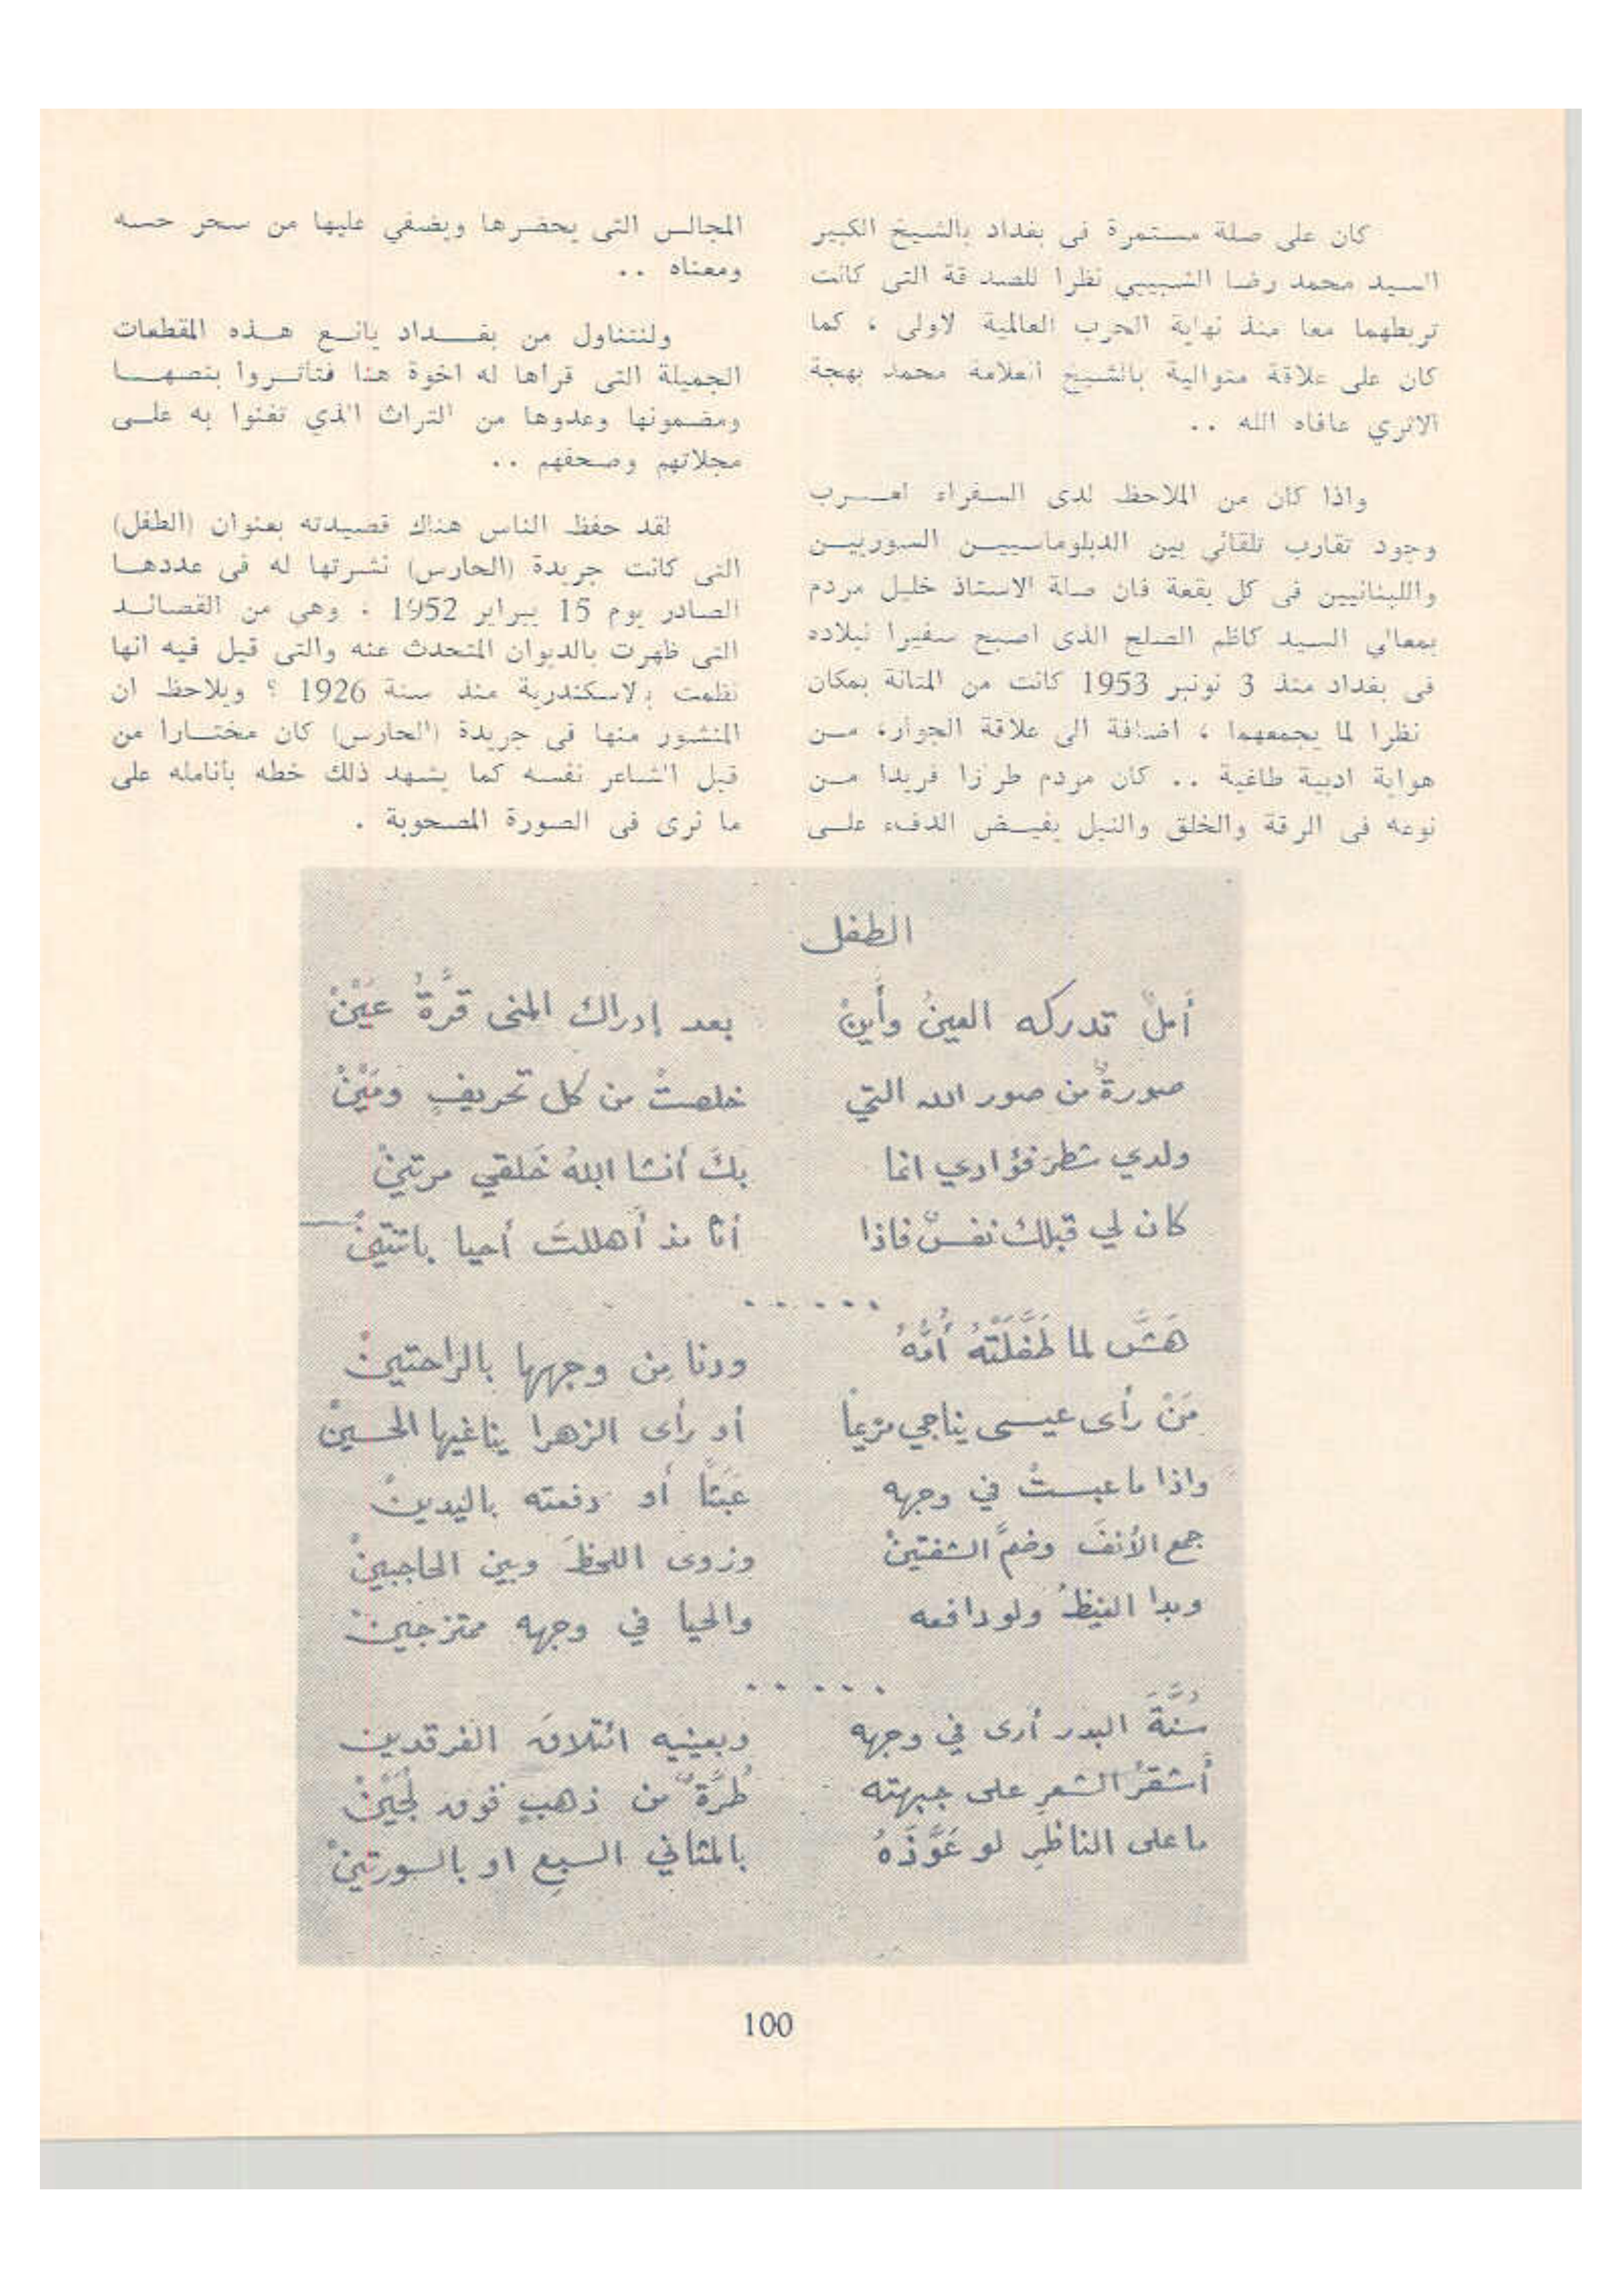 كان على صلة مستمرة فى بغداد بالشيخ الكبير
السيد محمد رضا الشبيبي نظرا للصد قة التى كانت
تربطهما معا منذ نهاية الحرب العالمية لاولى ، كما
كان على علاقة متوالية بالشيخ العلامة محمد بهجة
الاثري عافاه الله ..
واذا كان من الملاحظ لدى السفراء لعـــرب
وجود تقارب تلقائي بين الدبلوماسييـن السوريـين
واللبنانيين فى كل بقعة فان صلة الاستاذ خليل مردم
بمعالي السيد كاظم الصلح الذى أصبح سفيرا لبلاده
فى بغداد منذ 3 نونبر 1953 كانت من المتانة بمكان
نظرا لما يجمعهما ، اضافة الى علاقة الجوار، مـن
هواية ادبية طاغية .. كان مردم طرزا فريدا مـن
نوعه فى الرقة والخلق والنبل يفيـض الدفء علـى
المجالس التى يحضرها ويضفي عليها من سحر حسه
ومعناه ..
ولنتناول من بغــداد يانـع هـذه المقطعات
الجميلة التى قرأها له اخوة هنا فتأثـروا بنصهـا
ومضمونها وعدوها من التراث الذي تغنوا به علـى
مجلاتهم وصحفهم ..
لقد حفظ الناس هناك قصيدته بعنوان (الطفل)
التى كانت جريدة (الحارس) نشرتها له فى عددهـا
الصادر يوم 15 يبراير 1952 ، وهي من القصائـد
التى ظهرت بالديوان المتحدث عنه والتى قيل فيه انها
نظمت بلاسكندرية منذ سنة 1926 ؟ ويلاحظ ان
المنشور منها فى جريدة (الحارس) كان مختـارا من
قبل الشاعر نفسه كما يشهد ذلك خطه بأنامله على
ما نرى فى الصورة المصحوبة .
الطفل
أملٌ تدركه العينُ وأينْ بعد إدراك المنى قرَّةُ عَيْنْ
صورةٌ من صور الله التي خلصتْ من كل تحريفٍ ومَيْنْ
ولدي شطرَ فؤادي انما بكَ أنشا اللهُ خَلقي مرتينْ
كان لي قبلك نفسٌ فاذا أنا مذ أَهللتَ أحيا باثنتينْ
.....
هَشَّ لما طَفَّلَتْهُ أُمُّهُ ودنا مِن وجهها بالراحتينْ
مَنْ رأى عيسى يناجي مريماً أو رأى الزهرا يناغيها الحسينْ
واذا ما عبستْ في وجهه عَبَثاً أو دفعته باليدينْ
جمع الأنفَ وضمَّ الشفتينْ وزوى اللحظَ وبين الحاجبينْ
وبدا الغيظُ ولو دافعه والحيا في وجهه ممتزجينْ
.....
سُنَّةَ البدر أرى في وجهه وبعينيه ائتلاقَ الفرقدين
أشقرُ الشعرِ على جبهته طُرَّةٌ من ذهبٍ فوق لُجَيْنْ
ما على الناظرِ لو عَوَّذَهُ بالمثاني السبعِ او بالسورتينْ
100